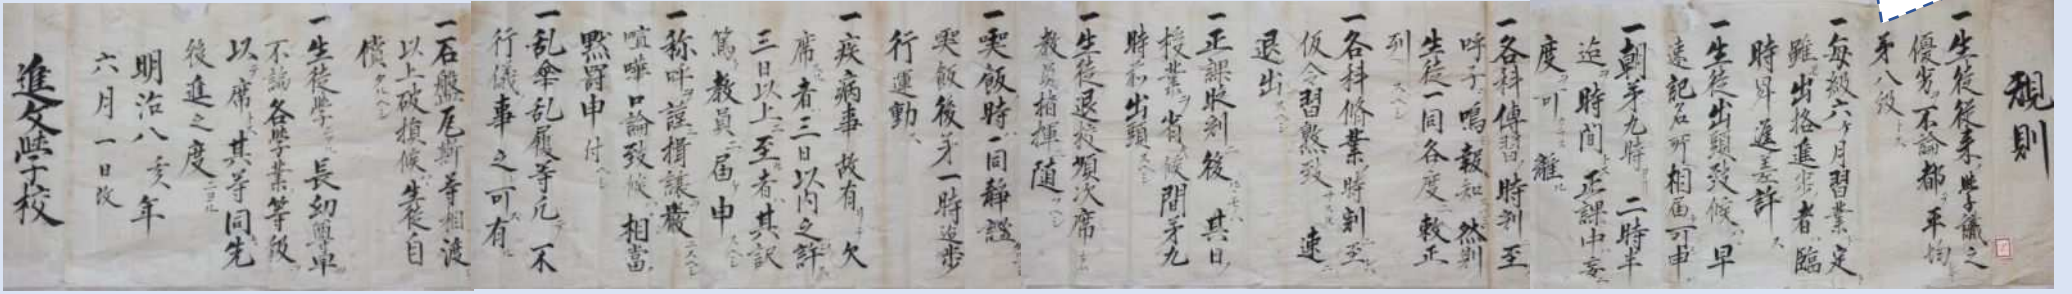 規則
一生徒従来ノ学識之
優劣ヲ不論都テ平均
第八級トス
一毎級六ヶ月習業ノ定
雖出格進歩ノ者ハ臨
時昇進差許ス
一生徒出頭致候ハヽ早
速記名所ニ相届可申
一朝第九時ヨリ二時半
迄ヲ時間トス正課中妄
度可離
一各科傳習ノ時刻至
呼子ノ鳴報知ス然則
生徒一同各度ニ敕正
列スヘシ
一各科脩業ノ時刻ニ至
仮令習熟致サストモ速ニ
退出スヘシ
一正課時刻後ニ其日
授業ヲ省候間第九
時前出頭スヘシ
一生徒退校順次席
教員指揮ニ随フヘシ
一喫飯時一同静謐
喫飯後第一時迄歩
行運動ス
一疾病事故有リテ欠
席ノ者三日以内ハ之ヲ許ス
三日以上ニ至ル者ハ其訳
篤ト教員ニ届ケ申スヘシ
一称呼ヲ謹ミ揖譲ヲ厳ニスヘシ
喧嘩口論致候ハヽ相当ノ
黙罰申付ヘシ
一乱傘乱履等凡テ不
行儀ノ事之可有ル
一石盤瓦斯等相渡
以上破損候ハヽ生徒自
償タルヘシ
一生徒学ニ長幼尊卑
不論各学業ノ等級
以テ席トス其等同キハ先
後進之度ニヨル
明治八亥年
六月一日改
進文學校